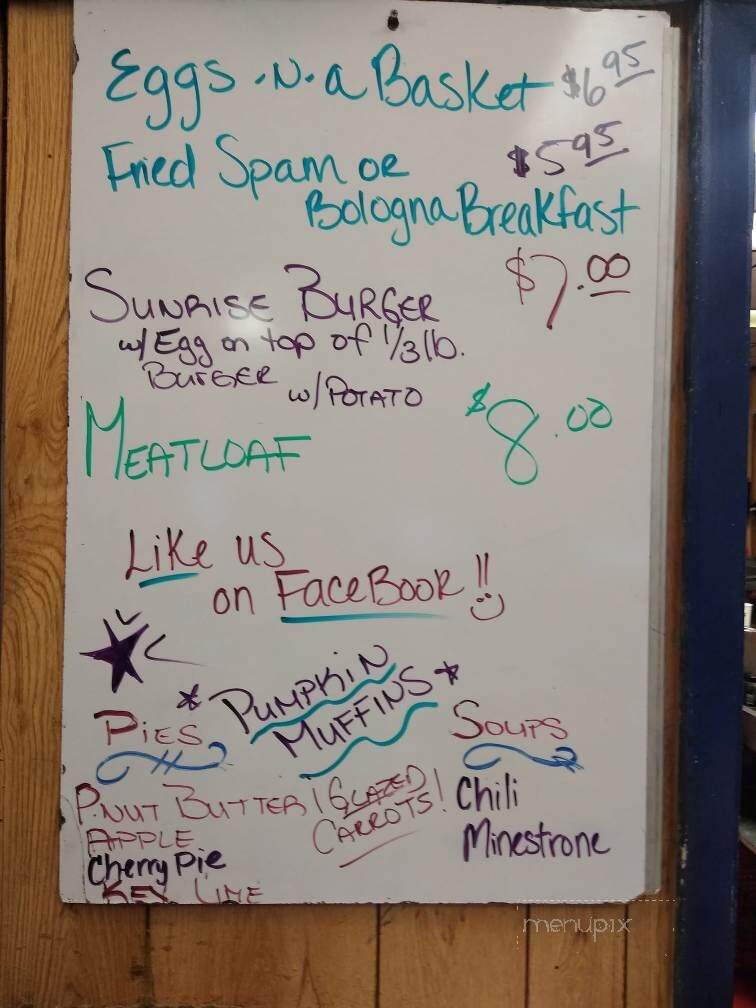 Eggs .N. a Basket $6 95
Fried Spam or $5 95
Bologna Breakfast
SUNRISE BURGER $7.00
w/ Egg on top of 1/3 lb.
BURGER w/ POTATO
MEATLOAF $8.00
Like us
on FaceBook!!
*PUMPKIN
MUFFINS*
PIES
SOUPS
P.NUT BUTTER
APPLE
Cherry Pie
KEY LIME
! GLAZED
CARROTS!
Chili
Minestrone
menupix